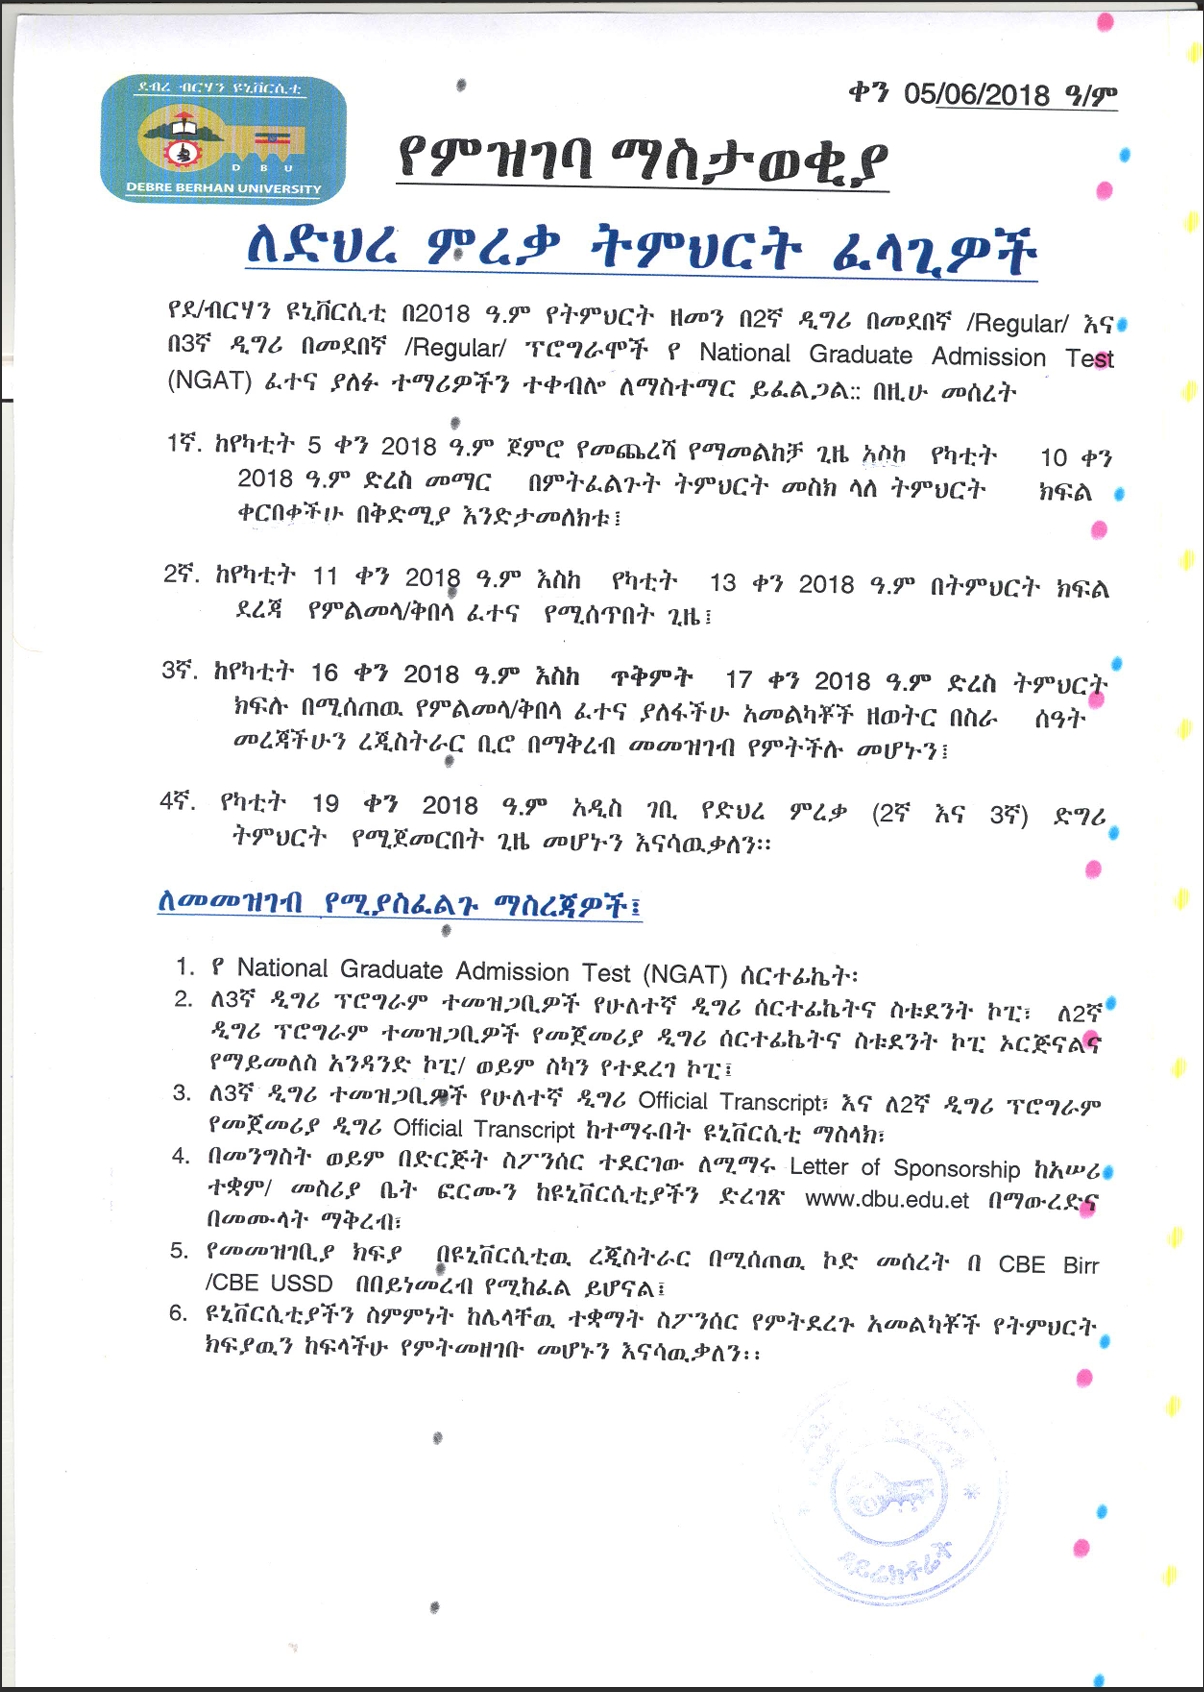 ደብረ ብርሃን ዩኒቨርሲቲ
D B U
DEBRE BERHAN UNIVERSITY
ቀን 05/06/2018 ዓ/ም
የምዝገባ ማስታወቂያ
ለድህረ ምረቃ ትምህርት ፈላጊዎች
የደ/ብርሃን ዩኒቨርሲቲ በ2018 ዓ.ም የትምህርት ዘመን በ2ኛ ዲግሪ በመደበኛ /Regular/ እና
በ3ኛ ዲግሪ በመደበኛ /Regular/ ፕሮግራሞች የ National Graduate Admission Test
(NGAT) ፈተና ያለፉ ተማሪዎችን ተቀብሎ ለማስተማር ይፈልጋል፡፡ በዚሁ መሰረት
1ኛ. ከየካቲት 5 ቀን 2018 ዓ.ም ጀምሮ የመጨረሻ የማመልከቻ ጊዜ አስከ የካቲት 10 ቀን
2018 ዓ.ም ድረስ መማር በምትፈልጉት ትምህርት መስክ ላለ ትምህርት ክፍል
ቀርበቀችሁ በቅድሚያ እንድታመለክቱ፤
2ኛ. ከየካቲት 11 ቀን 2018 ዓ.ም እስከ የካቲት 13 ቀን 2018 ዓ.ም በትምህርት ክፍል
ደረጃ የምልመላ/ቅበላ ፈተና የሚሰጥበት ጊዜ፤
3ኛ. ከየካቲት 16 ቀን 2018 ዓ.ም እስከ ጥቅምት 17 ቀን 2018 ዓ.ም ድረስ ትምህርት
ክፍሉ በሚሰጠዉ የምልመላ/ቅበላ ፈተና ያለፋችሁ አመልካቾች ዘወትር በስራ ሰዓት
መረጃችሁን ረጂስትራር ቢሮ በማቅረብ መመዝገብ የምትችሉ መሆኑን፤
4ኛ. የካቲት 19 ቀን 2018 ዓ.ም አዲስ ገቢ የድህረ ምረቃ (2ኛ እና 3ኛ) ድግሪ
ትምህርት የሚጀመርበት ጊዜ መሆኑን እናሳዉቃለን፡፡
ለመመዝገብ የሚያስፈልጉ ማስረጃዎች፤
1. የ National Graduate Admission Test (NGAT) ሰርተፊኬት፡
2. ለ3ኛ ዲግሪ ፕሮግራም ተመዝጋቢዎች የሁለተኛ ዲግሪ ሰርተፊኬትና ስቱደንት ኮፒ፣ ለ2ኛ
ዲግሪ ፕሮግራም ተመዝጋቢዎች የመጀመሪያ ዲግሪ ሰርተፊኬትና ስቱደንት ኮፒ ኦርጅናልና
የማይመለስ አንዳንድ ኮፒ/ ወይም ስካን የተደረገ ኮፒ፤
3. ለ3ኛ ዲግሪ ተመዝጋቢዎች የሁለተኛ ዲግሪ Official Transcript፣ እና ለ2ኛ ዲግሪ ፕሮግራም
የመጀመሪያ ዲግሪ Official Transcript ከተማሩበት ዩኒቨርሲቲ ማስላክ፣
4. በመንግስት ወይም በድርጅት ስፖንሰር ተደርገው ለሚማሩ Letter of Sponsorship ከአሠሪ
ተቋም/ መስሪያ ቤት ፎርሙን ከዩኒቨርሲቲያችን ድረገጽ www.dbu.edu.et በማውረድና
በመሙላት ማቅረብ፣
5. የመመዝገቢያ ክፍያ በዩኒቨርሲቲዉ ረጂስትራር በሚሰጠዉ ኮድ መሰረት በ CBE Birr
/CBE USSD በበይነመረብ የሚከፈል ይሆናል፤
6. ዩኒቨርሲቲያችን ስምምነት ከሌላቸዉ ተቋማት ስፖንሰር የምትደረጉ አመልካቾች የትምህርት
ክፍያዉን ከፍላችሁ የምትመዘገቡ መሆኑን እናሳዉቃለን፡፡